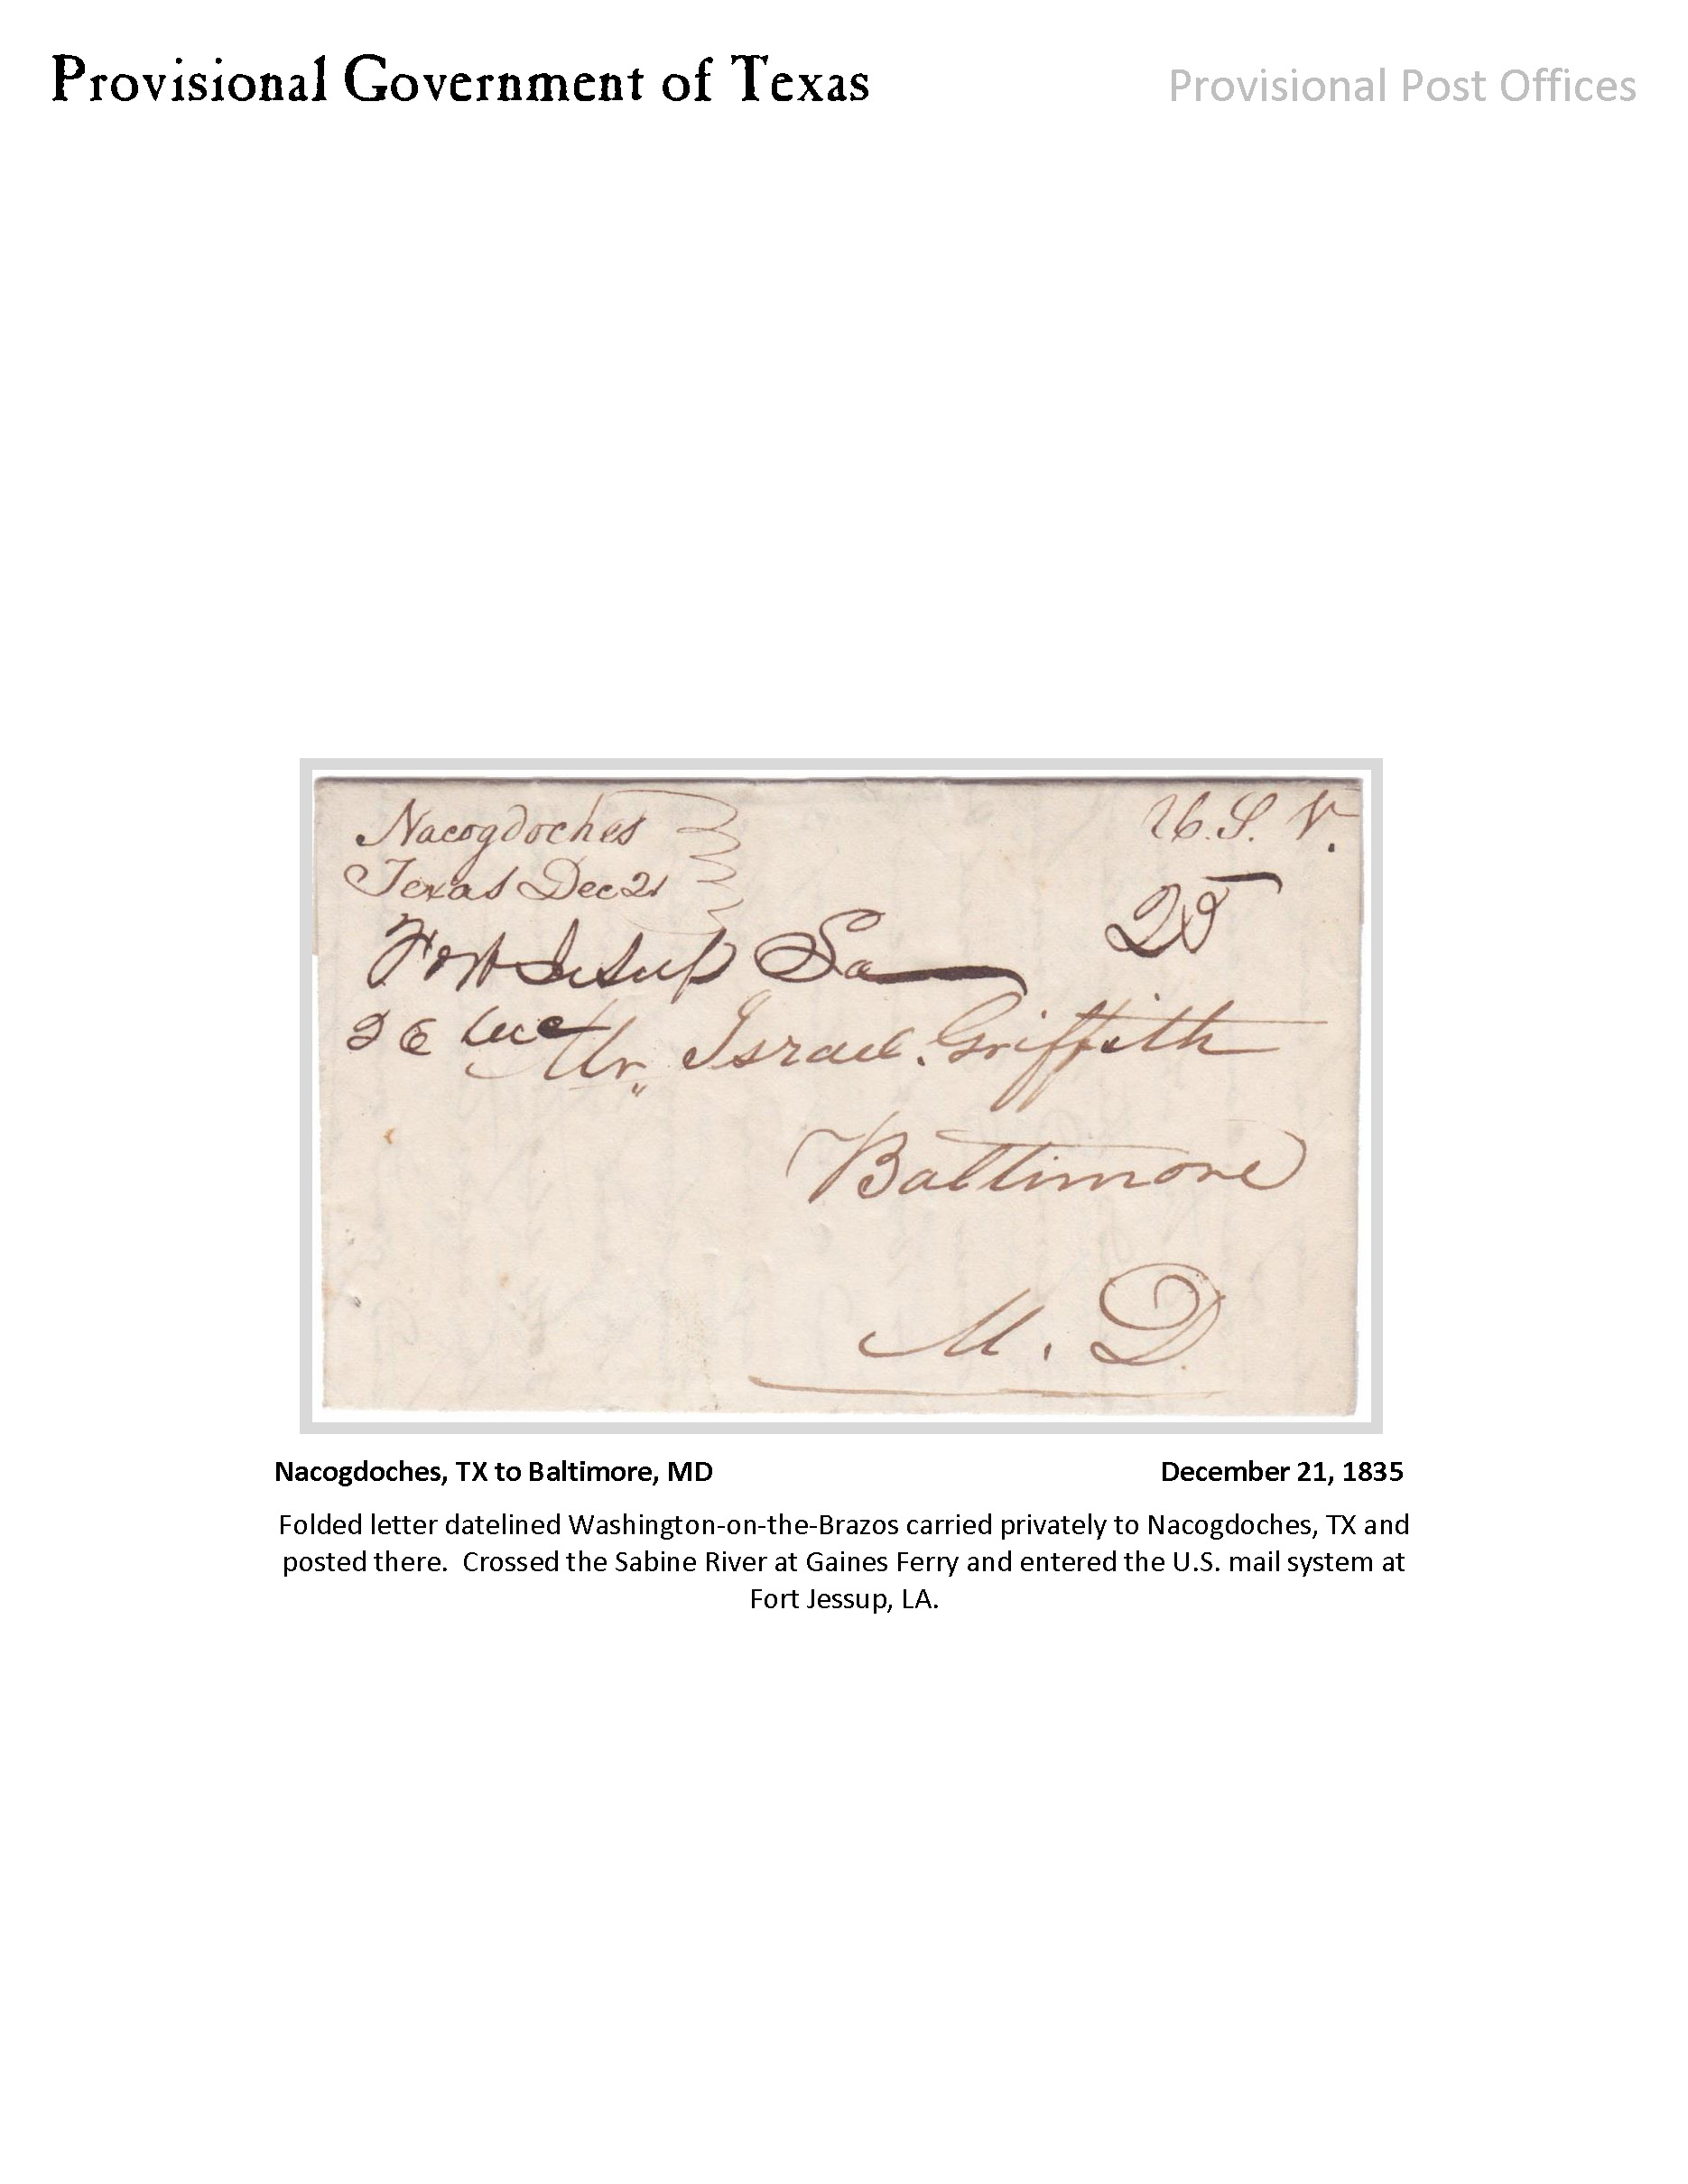 Provisional Government of Texas
Provisional Post Offices
Nacogdoches
Texas Dec 21
U.S.
25
Fort Jesup La
26 Dec
Mr. Israel Griffith
Baltimore
M. D
Nacogdoches, TX to Baltimore, MD
December 21, 1835
Folded letter datelined Washington-on-the-Brazos carried privately to Nacogdoches, TX and
posted there.  Crossed the Sabine River at Gaines Ferry and entered the U.S. mail system at
Fort Jessup, LA.